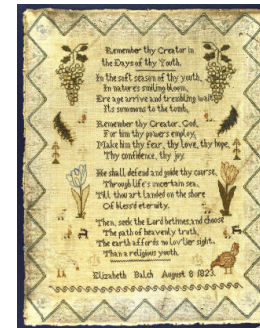 Remember thy Creator in
the Days of thy Youth.
In the soft season of thy youth,
In nature's smiling bloom,
Ere age arrive and trembling wait
Its summons to the tomb,
Remember thy Creator, God,
For him thy powers employ,
Make him thy fear, thy love, thy hope,
Thy confidence, thy joy.
He shall defend and guide thy course,
Through life's uncertain sea,
Till thou art landed on the shore
Of bless'd eternity.
Then, seek the Lord betimes, and choose
The path of heavenly truth,
The earth affords no lov'lier sight,
Than a religious youth.
Elizabeth Balch August 8 1823.